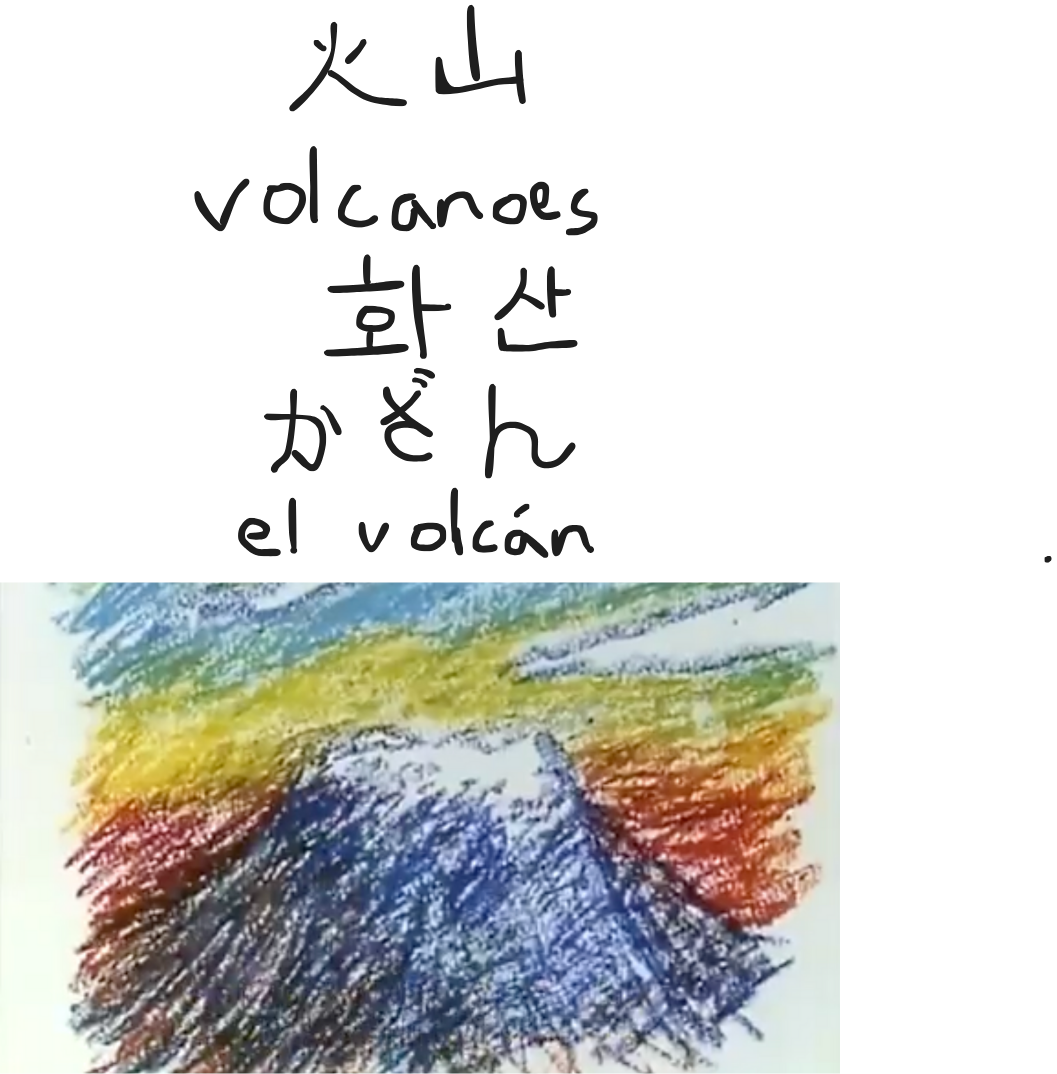 火山
volcanoes
화산
かざん
el volcán